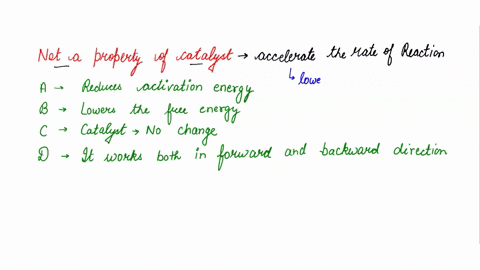 Not a property of catalyst → accelerate the rate of Reaction
↳ lowe
A → Reduces activation energy
B → Lowers the free energy
C → Catalyst → No change
D → It works both in forward and backward direction